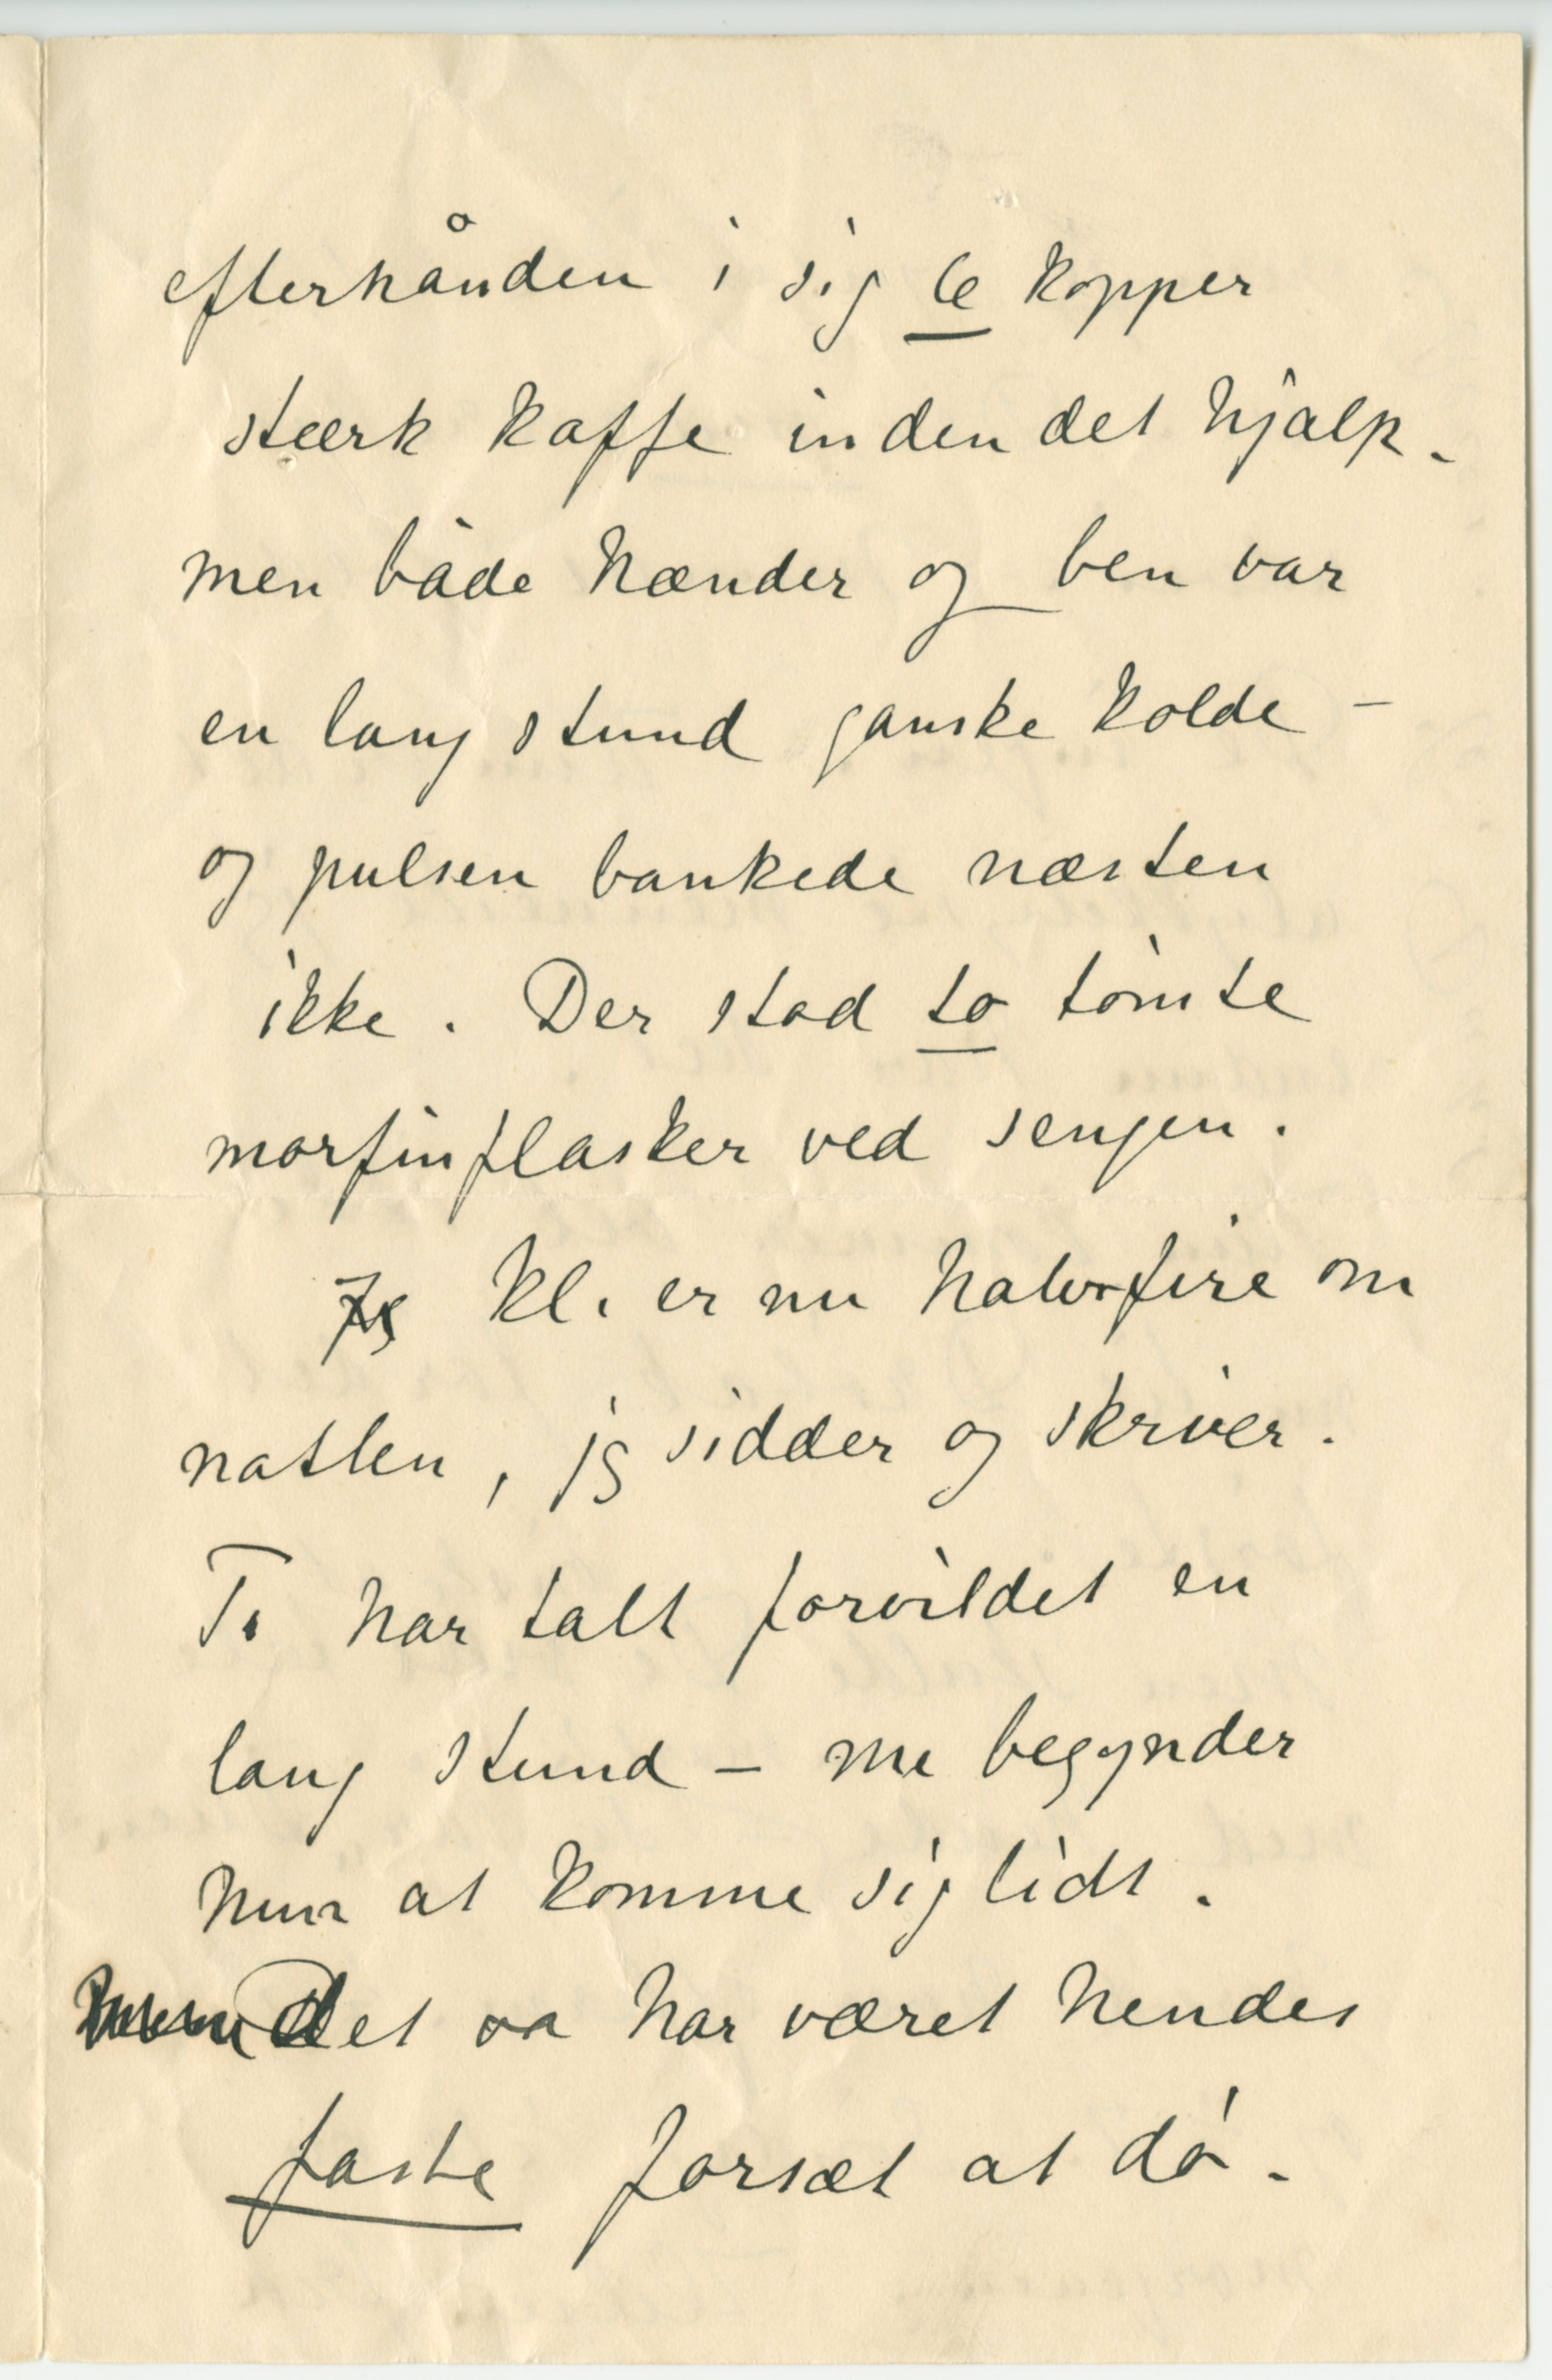 efterhånden i sig 6 kopper
stærk kaffe inden det hjalp.
men både hænder og ben var
en lang stund ganske kolde –
og pulsen bankede næsten
ikke. Der stod to tømte
morfinflasker ved sengen.
Jg kl. er nu halvfire om
natten, jg sidder og skriver.
T. har talt forvildet en
lang stund – nu begynder
hun at komme sig lidt.
Det va har været hendes
faste forsæt at dø.